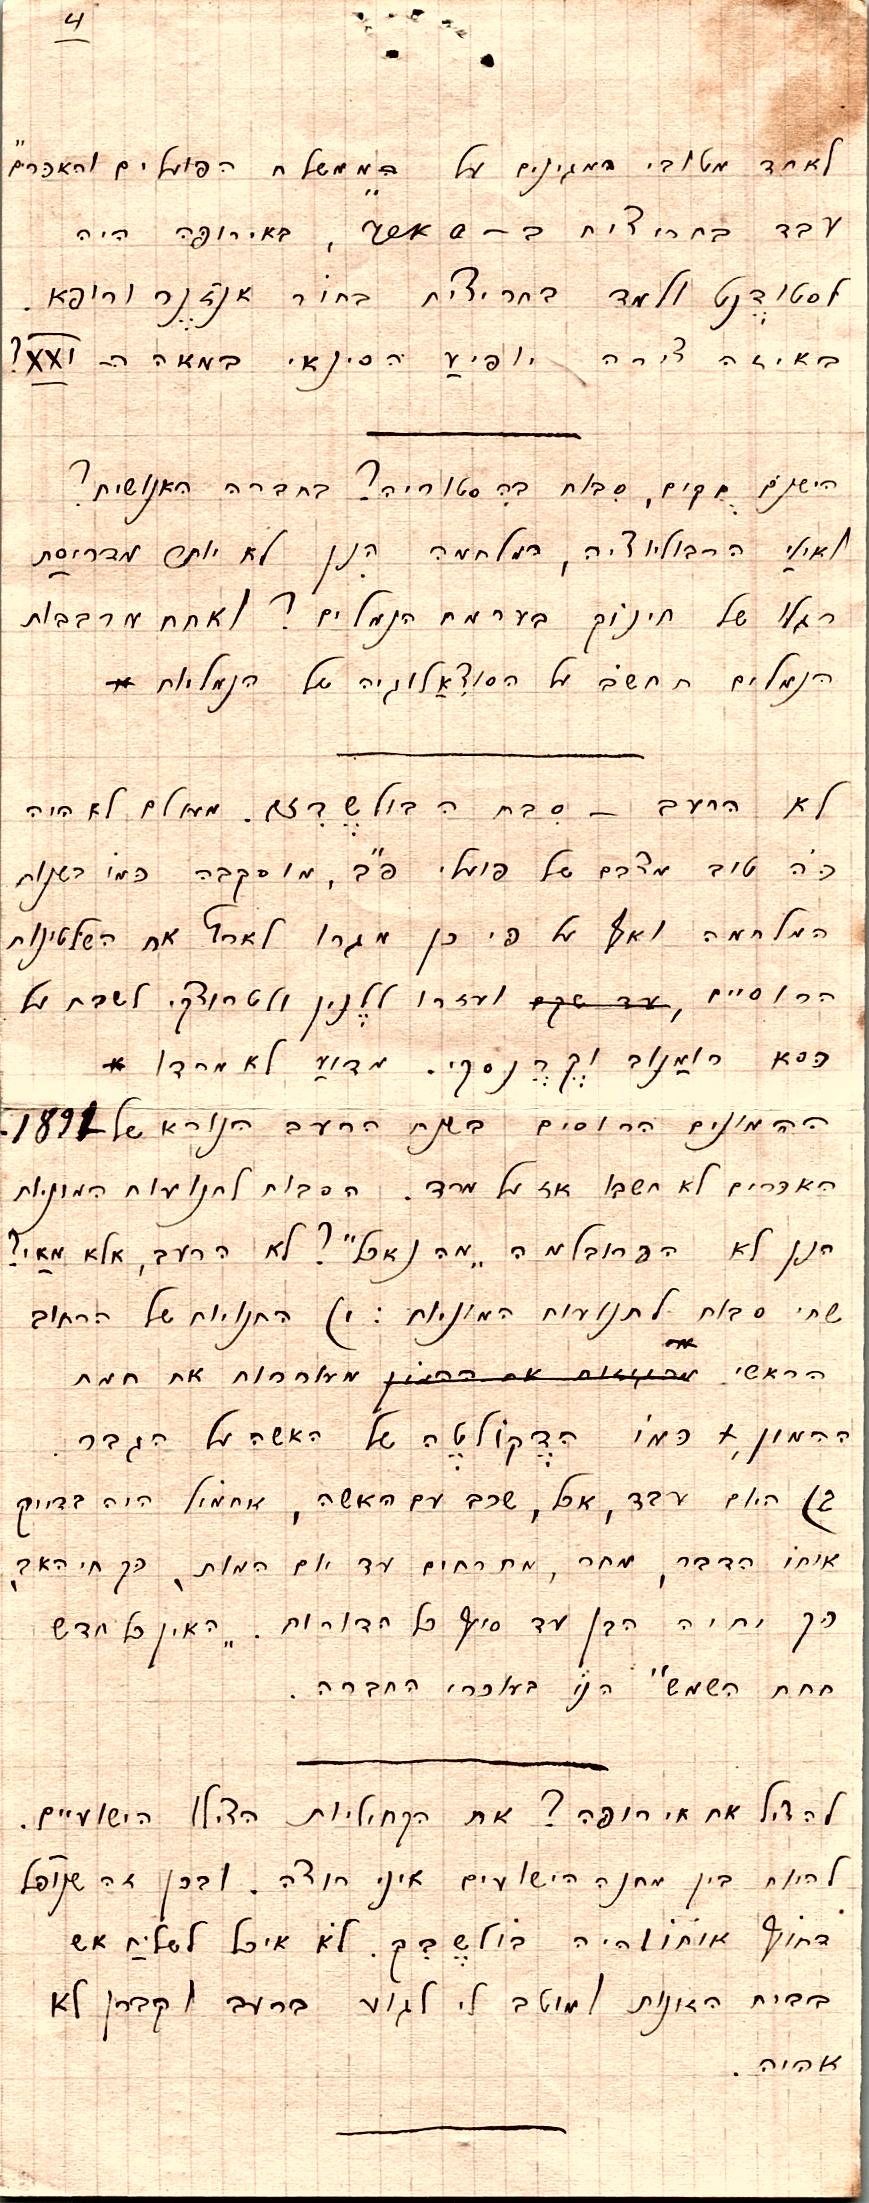 4
לאחד מטובי המגינים על „ממשלת הפועלים והאכרים"
עבד בחריצות ב– , באירופה היה
לסטודֶנט ולמד בחריצות בתוֹר אנזֶ'נֶר ורופא.
באיזה צורה יופיעַ הסינאי במאה ה– XXI?
הישנם חֻקים, סִבות בהִסטוריה? בחברה האנושית?
ואוּלַי הרבולוציה, המלחמה הִנן לא יותר מדריסַת
רגלו של תינוֹק בערמת הנמלים? ואחת מרבבות
הנמלים תחשוֹב על הסוֹצִאַלוגיה של הנמליות
לא הרעב – סִבת הבולשֶבִזם. מעולם לא היה
כֹה טוב מצבם של פועלי פ"ב, מוסקבה כמוֹ בשנות
המלחמה ואף על פי כן מגרו לארץ את השלטונות
הרוסיים, ועזרו ללֶנין ולטרוצקי לשבת על
כסא רומַנוב וקֶרֶנסקי. מדוּעַ לא מרדו
ההמונים הרוסים בשנת הרעב הנורא של 1891.
האכרים לא חשבו אז על מרד. הסבות לתנועות המוניות
הנן לא הפרובלמה „מה נאכל"? לא הרעב, אלא מַאי?
שתי סבות לתנועות המוניות: 1) החנויות של הרחוב
הראשי מעוררות את חמת
ההמון, כמוֹ הדֶקוֹלטֶה של האשה על הגבר.
2) היום עבד, אכל, שכב עם האשה, אתמוֹל היה בדיוק
אותוֹ הדבר, מחר, מחרתים עד יום המות, כך חי האב,
כך יחיה הבן עד סוף כל הדורות. „האין כל חדש
תחת השמש" הנוֹ בעוכרי החברה.
להציל את אירופה? את הקתוליות הצילו הישועיים.
להיות בין מחנה הישועים איני רוצה. ובכן זה שנוֹפל
דחוֹף אותוֹ! היה בוֹלשֶבִק. לֹא אוכל לשלוֹחַ אש
בבית הזונות ומוטב לי לגוע ברעב וקברן לא
אהיה.